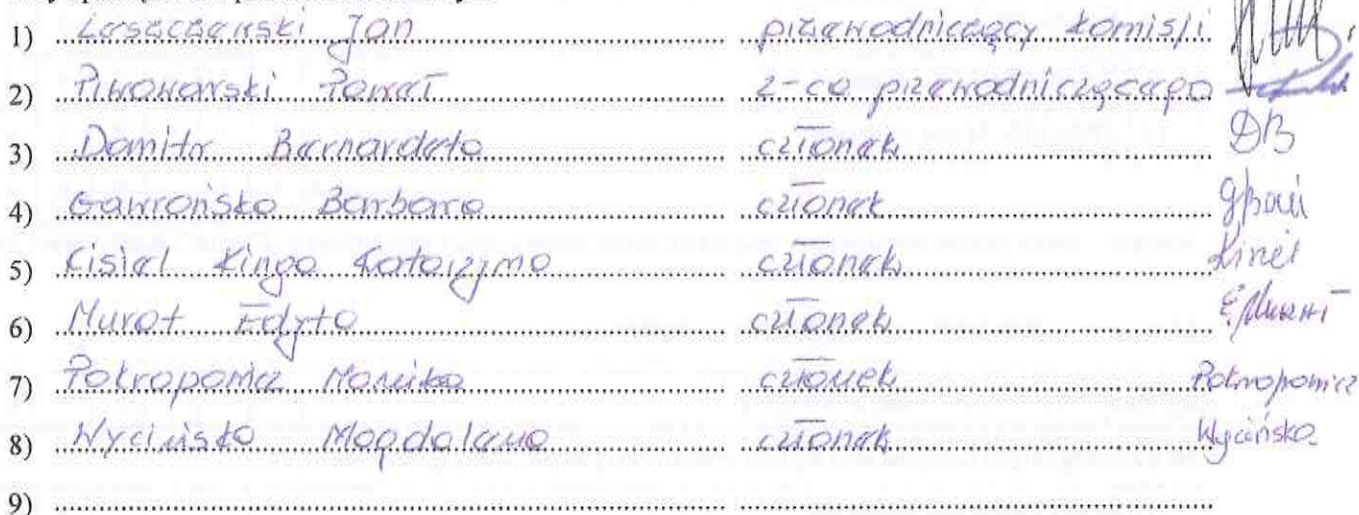 1) Leszczewski Jan przewodniczący komisji
2) Piwowarski Paweł z-ca przewodniczącego
3) Damitr Bernardeta członek DB
4) Gawrońska Barbara członek
5) Kisiel Kinga Katarzyna członek Kisiel
6) Murat Edyta członek E. Murat
7) Pokropowicz Monika członek Pokropowicz
8) Wycińska Magdalena członek Wycińska
9)